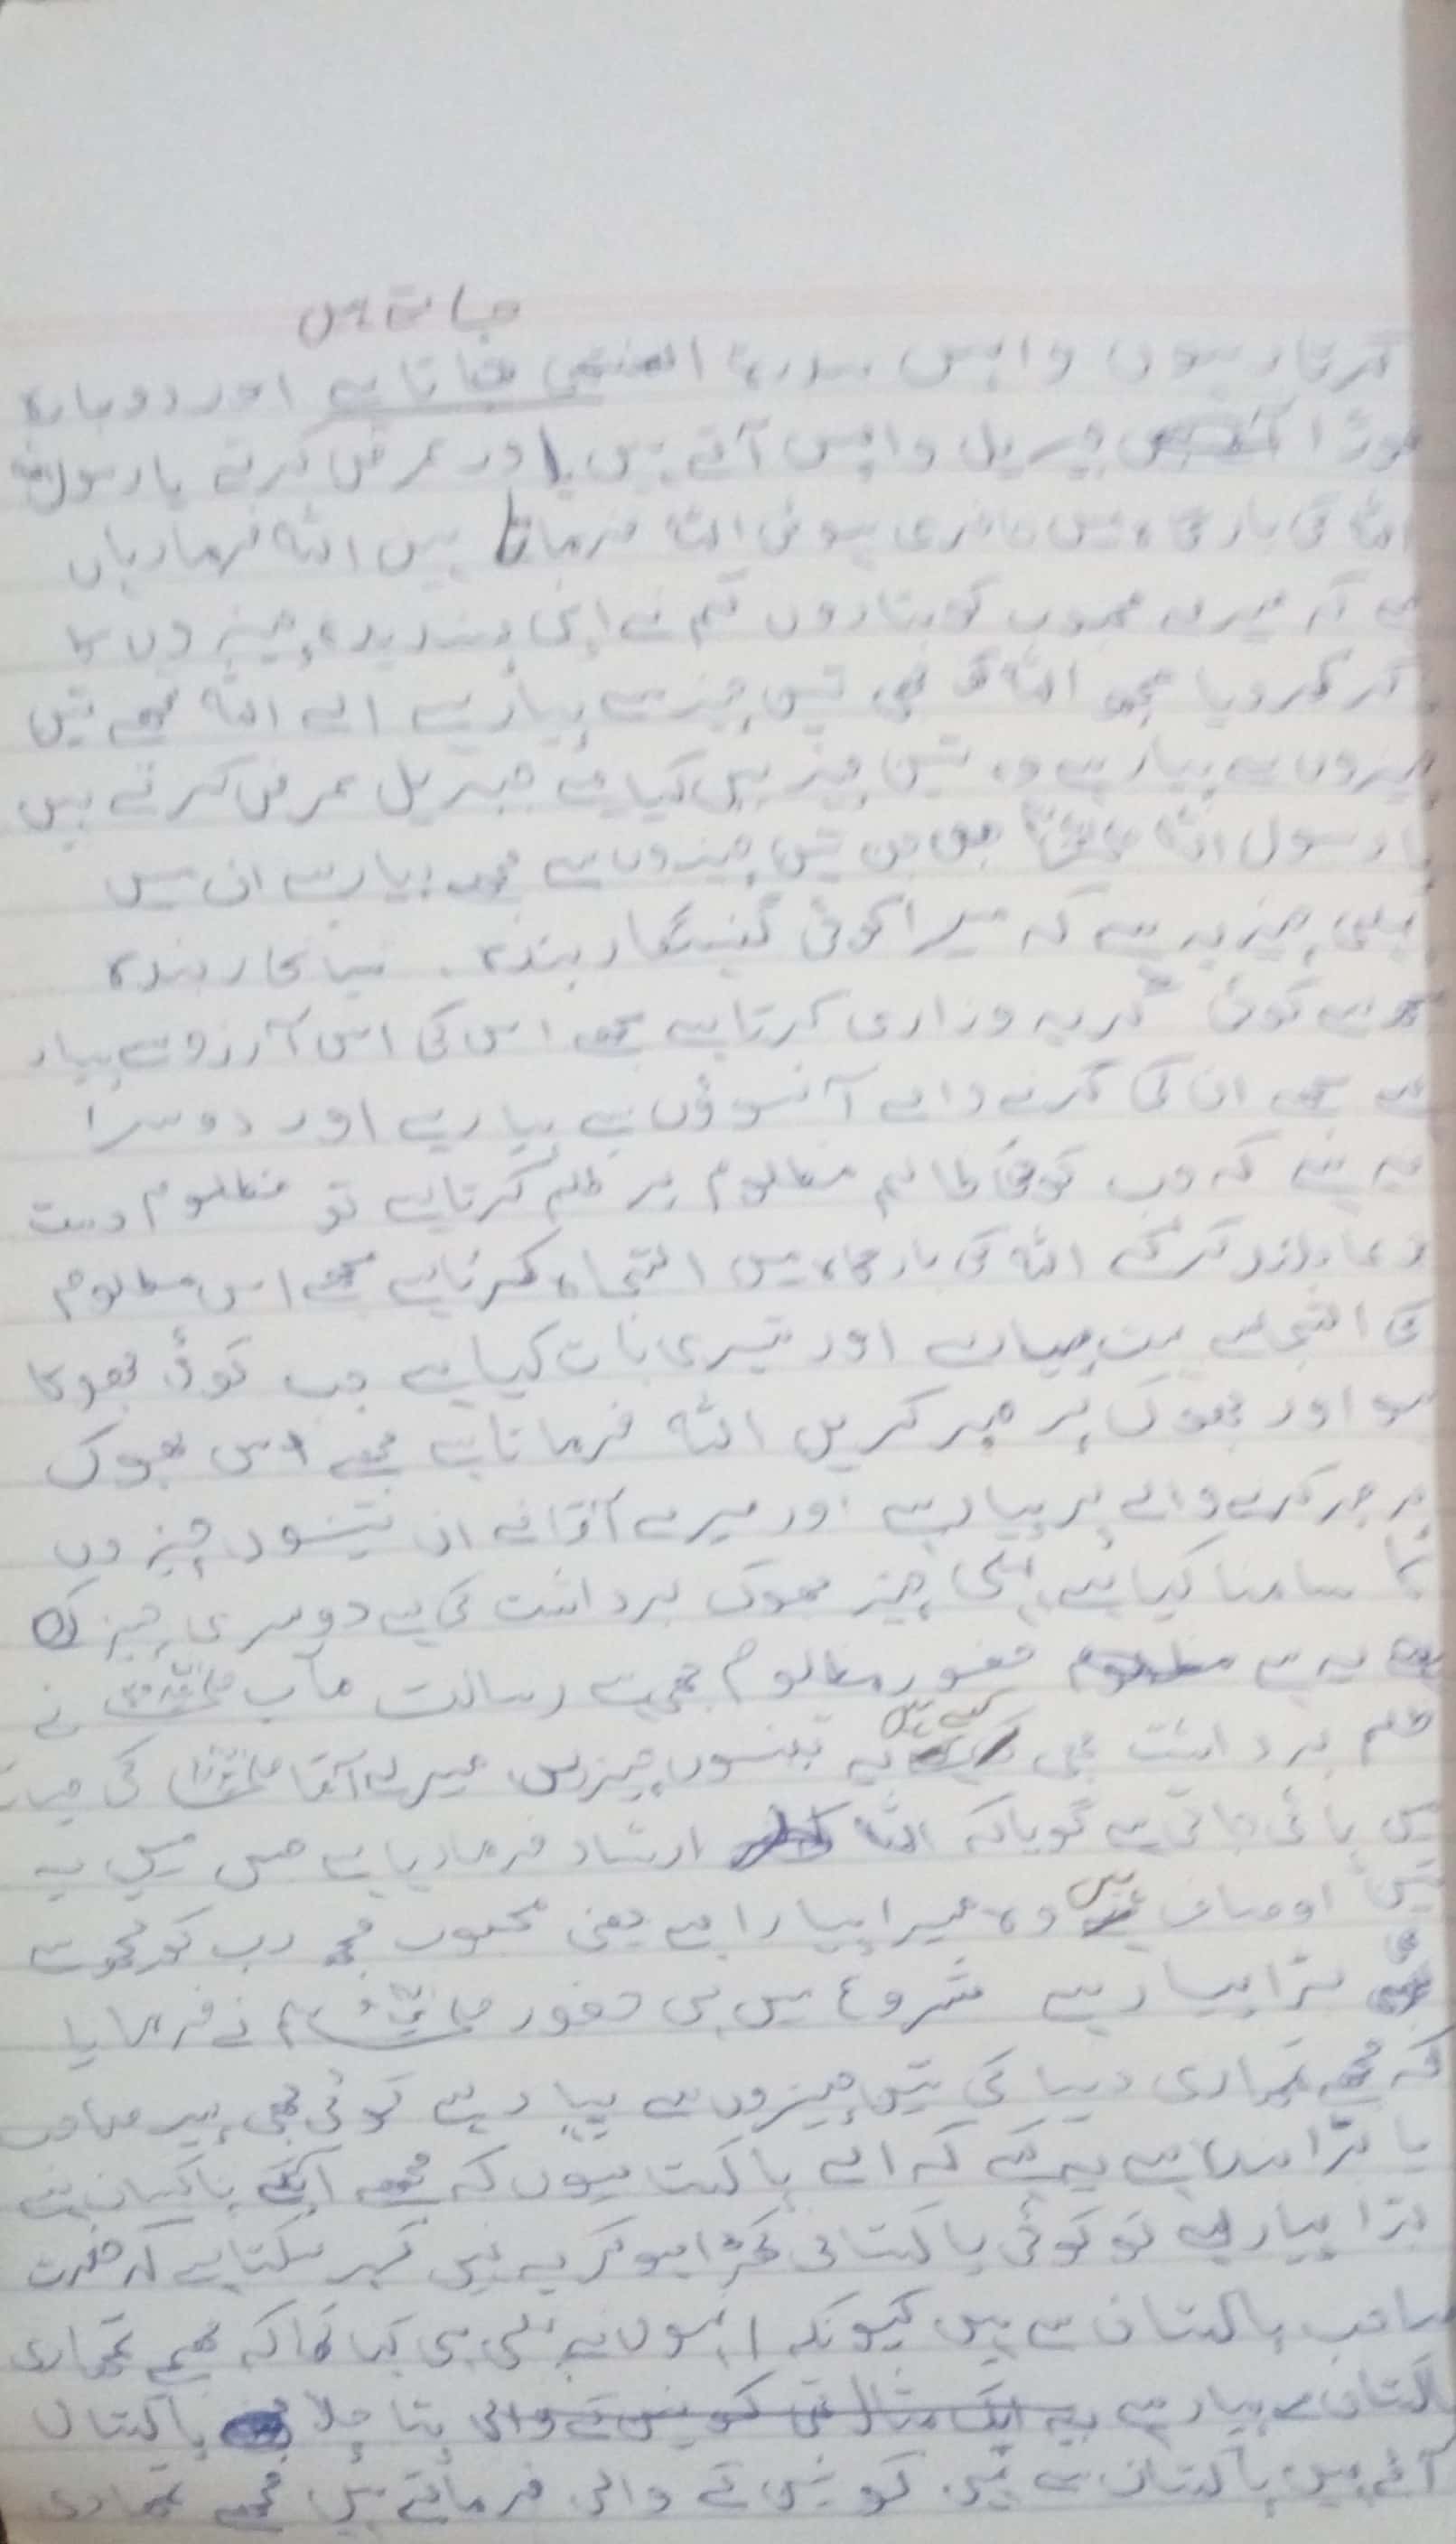 جاتے ہیں
کرتا ہوں واپس سدرۃ المنتہی جاتا ہے اور دوبارہ
جبریل واپس آتے ہیں اور عرض کرتے یا رسول اللہ
اللہ کی بارگاہ میں حاضری ہوئی اللہ فرماتا ہیں اللہ فرما رہاں
ہے کہ میرے محبوب کو بتا دوں تم نے اپنی پسندیدہ چیزوں کا
ذکر کر دیا مجھ اللہ کو بھی تین چیز سے پیار ہے اے اللہ تجھے تین
چیزوں سے پیار ہے وہ تین چیزیں کیا ہے جبریل عرض کرتے ہیں
یا رسول اللہ ﷺ جن تین چیزوں سے مجھے پیار ہے ان میں
پہلی چیز یہ ہے کہ میرا کوئی گنہگار بندہ۔ سیاکار بندہ
کوئی گریہ وزاری کرتا ہے مجھے اس کی اس آرزو سے پیار
ہے مجھے ان کی گرنے والے آنسوؤں سے پیار ہے اور دوسرا
یہ ہے کہ جب کوئی ظالم مظلوم پر ظلم کرتا ہے تو مظلوم دست
دعا بلند کرکے اللہ کی بارگاہ میں التجاہ کرتا ہے مجھے اس مظلوم
کی التجا سے بہت پیار ہے اور تیسری بات کیا ہے جب کوئی بھوکا
ہو اور بھوک پر صبر کریں اللہ فرماتا ہے مجھے اس بھوک
پر صبر کرنے والے پر پیار ہے اور میرے آقا نے ان تینوں چیزوں
کا سامنا کیا ہے پہلی چیز بھوک برداشت کی ہے دوسری چیز
یہ ہے حضور مظلوم بھی ہے رسالت مآب ﷺ نے
ظلم برداشت بھی کیے ہیں یہ تینوں چیزیں میرے آقا ﷺ کی حیات
میں پائی جاتی ہے گویا کہ اللہ ارشاد فرما رہا ہے جس میں یہ
تین اوصاف ہیں وہ میرا پیارا ہے یعنی محبوب مجھ رب کو تجھ سے
بھی بڑا پیار ہے شروع میں ہی حضور ﷺ نے فرمایا
کہ مجھے تمہاری دنیا کی تین چیزوں سے پیار ہے کوئی بھی پیر صاحب
یا بڑا بندہ ہے یہ کہے کہ اے پاکستانیوں کہ مجھے آپکے پاکستان سے
بڑا پیار ہے تو کوئی پاکستانی کھڑا ہو کر یہ نہیں کہہ سکتا ہے کہ حضرت
صاحب پاکستان سے ہیں کیونکہ انہوں نے پہلے ہی کہا تھا کہ مجھے تمہاری
پاکستان سے پیار ہے یہ ایک مثال تھی کونین کے والی پتا چلا پاکستان
آئے ہیں پاکستان سے نہیں کونین کے والی فرماتے ہیں مجھے تمہاری